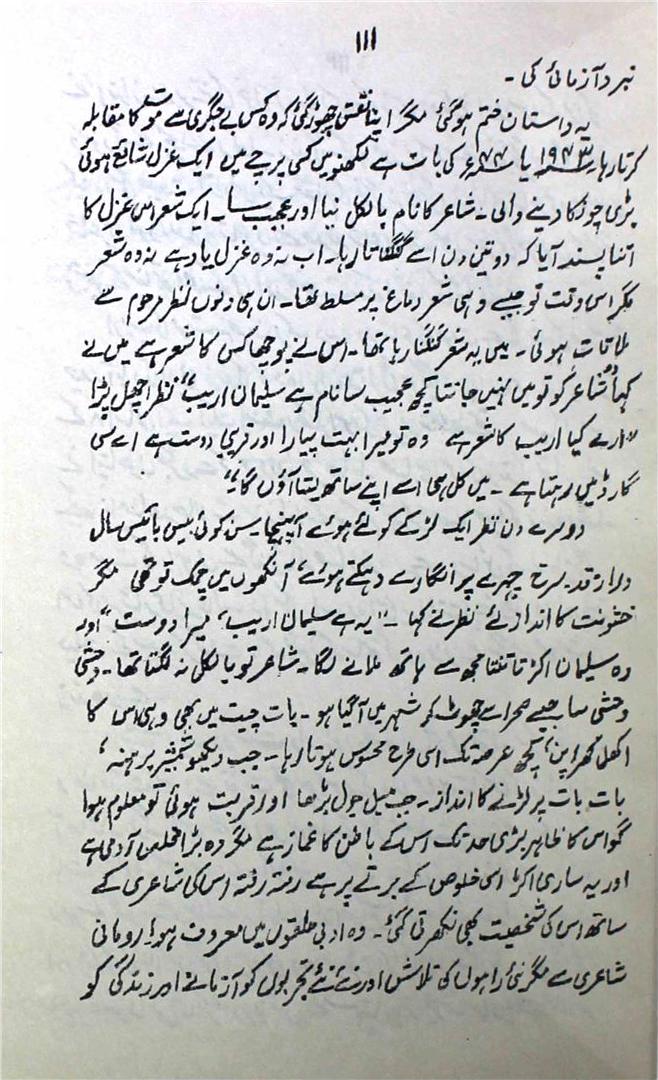 ۱۱۱
نبرد آزمائی کی۔
یہ داستان ختم ہوگئی مگر اپنا نقش چھوڑ گئی کہ وہ کس بے جگری سے موت کا مقابلہ
کرتا رہا۔ ۱۹۴۳ یا ۴۴ء کی بات ہے لکھنؤ میں کسی پرچے میں ایک غزل شائع ہوئی
بڑی چونکا دینے والی۔ شاعر کا نام بالکل نیا اور عجیب سا۔ ایک شعر اس غزل کا
اتنا پسند آیا کہ دو تین دن اسے گنگناتا رہا۔ اب نہ وہ غزل یاد ہے نہ وہ شعر
مگر اس وقت تو جیسے وہی شعر دماغ پر مسلط تھا۔ ان ہی دنوں نظر مرحوم سے
ملاقات ہوئی۔ میں یہ شعر گنگنا رہا تھا۔ اس نے پوچھا کس کا شعر ہے میں نے
کہا "شاعر کو تو میں نہیں جانتا کچھ عجیب سا نام ہے سلیمان اریب" نظر اچھل پڑا
"ارے کیا اریب کا شعر ہے وہ تو میرا بہت پیارا اور قریبی دوست ہے اے سی
گارڈ میں رہتا ہے۔ میں کل ہی اسے اپنے ساتھ لیتا آؤں گا۔"
دوسرے دن نظر ایک لڑکے کو لئے ہوئے آ پہنچا۔ سن کوئی بیس بائیس سال
دراز قد۔ سرخ چہرے پر انگارے دہکتے ہوئے، آنکھوں میں چمک تو تھی مگر
خشونت کا انداز لئے نظر نے کہا۔ "یہ ہے سلیمان اریب، میرا دوست" اور
وہ سلیمان اکڑتا تنتا مجھ سے ہاتھ ملانے لگا۔ شاعر تو بالکل نہ لگتا تھا۔ وحشی
وحشی سا جیسے صحرا سے چھوٹ کر شہر میں آ گیا ہو۔ بات چیت میں بھی وہی اس کا
اکھل کھرا پن، کچھ عرصہ تک اسی طرح محسوس ہوتا رہا۔ جب دیکھو شمشیر برہنہ،
بات بات پر لڑنے کا انداز۔ جب میل جول بڑھا اور قربت ہوئی تو معلوم ہوا
گو اس کا ظاہر بڑی حد تک اس کے باطن کا غماز ہے مگر وہ بڑا مخلص آدمی ہے
اور یہ ساری اکڑ اسی خلوص کے برتے پر ہے رفتہ رفتہ اس کی شاعری کے
ساتھ اس کی شخصیت بھی نکھرتی گئی۔ وہ ادبی حلقوں میں معروف ہوا۔ رومانی
شاعری سے مگر نئی راہوں کی تلاش اور نئے نئے تجربوں کو آزمانے اور زندگی کو